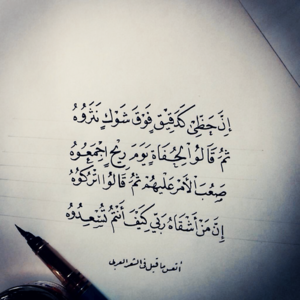 إِنَّ حَظِّي كَدَقِيقٍ فَوْقَ شَوْكٍ نَثَرُوهُ
ثُمَّ قَالُوا لِحُفَاةٍ يَوْمَ رِيحٍ اجْمَعُوهُ
صَعُبَ الْأَمْرُ عَلَيْهِمْ ثُمَّ قَالُوا اتْرُكُوهُ
إِنَّ مَنْ أَشْقَاهُ رَبِّي كَيْفَ أَنْتُمْ تُسْعِدُوهُ
أتعس ما قيل في الشعر العربي